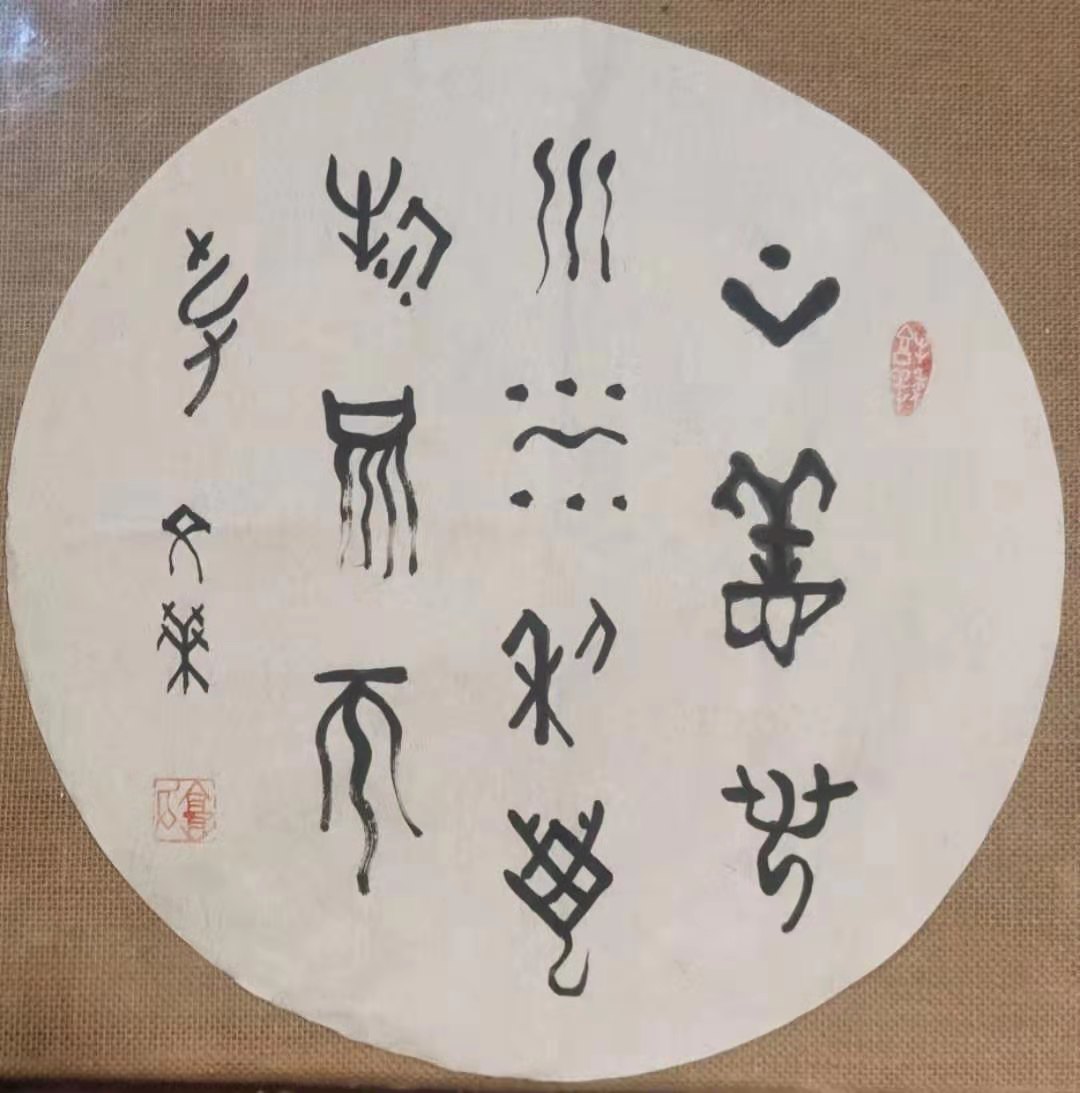 上善若
水水利萬
物而不
爭 文榮